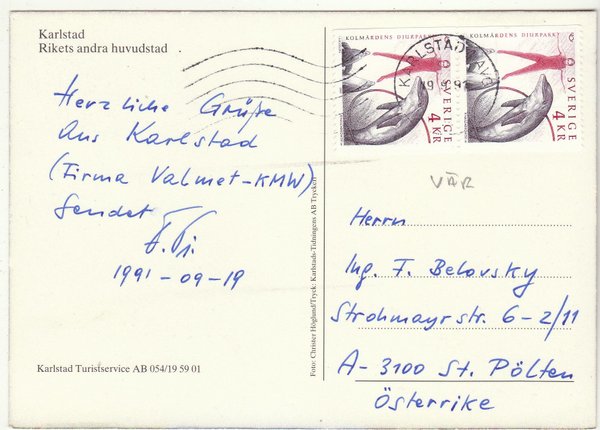 Karlstad
Rikets andra huvudstad
Herzliche Grüße
aus Karlstad
(Firma Valmet-KMW)
sendet
1991-09-19
Karlstad Turistservice AB 054/19 59 01
Foto: Christer Höglund/Tryck: Karlstads-Tidningens AB Tryckeri
KOLMÅRDENS DJURPARK
SVERIGE
4 KR
KOLMÅRDENS DJURPARK
SVERIGE
4 KR
KARLSTAD
VÄR
Herrn
Ing. F. Belovsky
Strohmayrstr. 6-2/11
A-3100 St. Pölten
Österrike